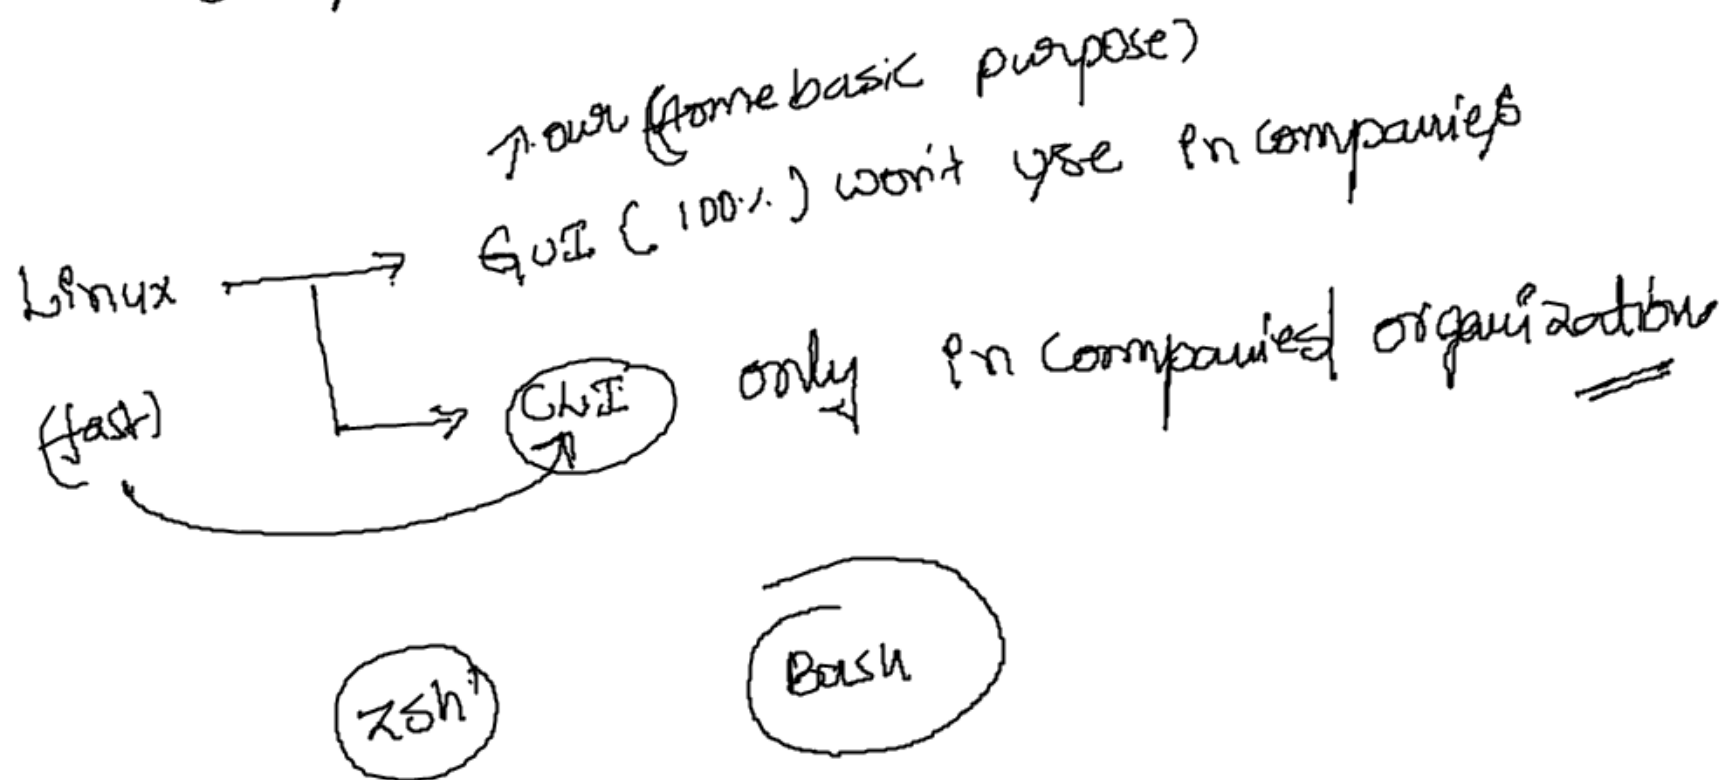 ↑ our (some basic purpose)
GUI (100%) won't use in companies
Linux
CLI only in companies/organizations
(fast)
Bash
zsh